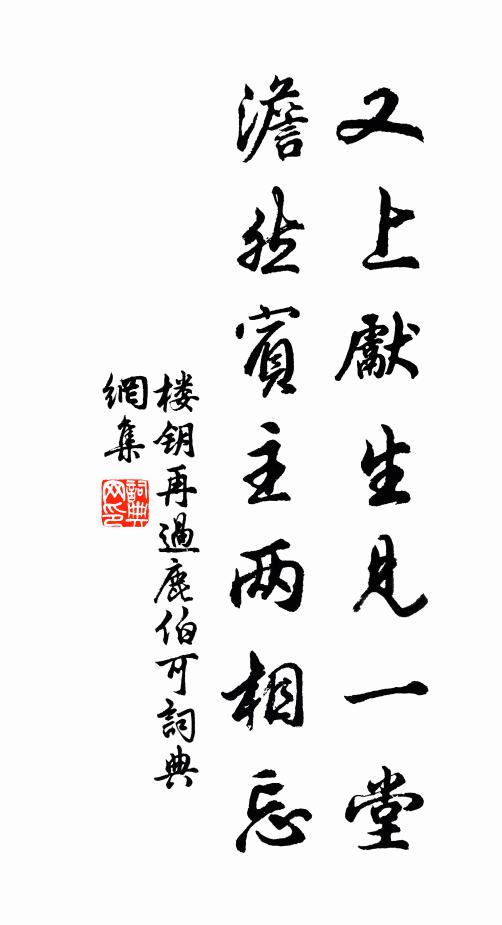 又上獻生見一堂
澹然賓主两相忘
楼钥再過鹿伯可詞典
網集
詞典
网印